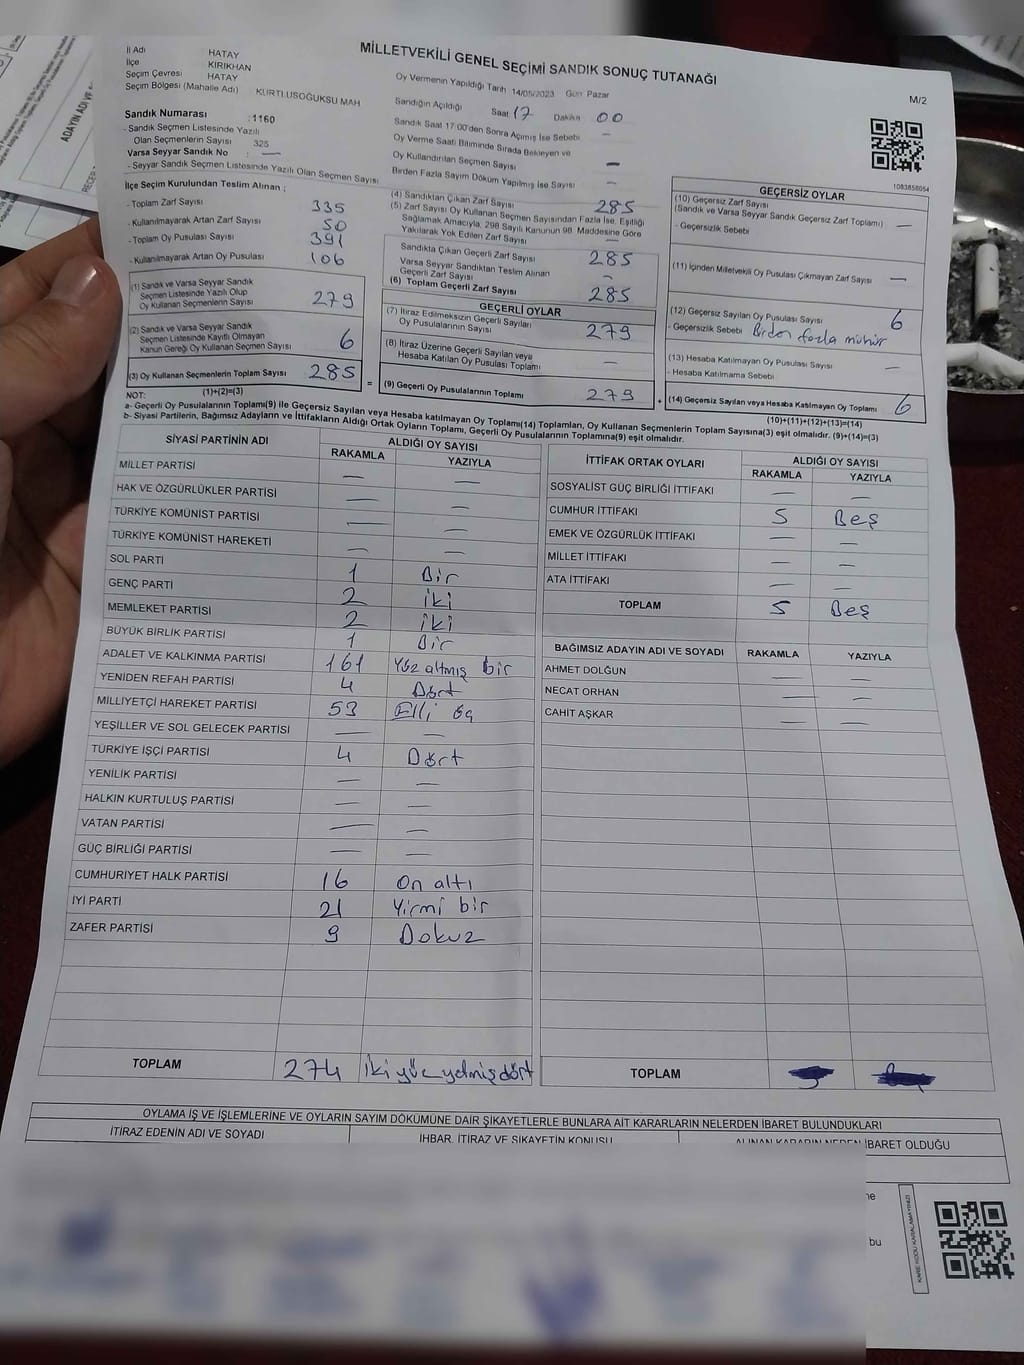 MİLLETVEKİLİ GENEL SEÇİMİ SANDIK SONUÇ TUTANAĞI
M/2
İl Adı HATAY
İlçe KIRIKHAN
Seçim Çevresi HATAY
Seçim Bölgesi (Mahalle Adı) KURTLUSOĞUKSU MAH
Sandık Numarası :1160
- Sandık Seçmen Listesinde Yazılı
Olan Seçmenlerin Sayısı 325
Varsa Seyyar Sandık No : —
- Seyyar Sandık Seçmen Listesinde Yazılı Olan Seçmen Sayısı
Oy Vermenin Yapıldığı Tarih 14/05/2023 Gün Pazar
Sandığın Açıldığı Saat 17 Dakika 00
Sandık Saat 17:00'den Sonra Açılmış İse Sebebi —
Oy Verme Saati Bitiminde Sırada Bekleyen ve
Oy Kullandırılan Seçmen Sayısı —
Birden Fazla Sayım Döküm Yapılmış İse Sayısı —
İlçe Seçim Kurulundan Teslim Alınan ;
- Toplam Zarf Sayısı 335
- Kullanılmayarak Artan Zarf Sayısı 50
- Toplam Oy Pusulası Sayısı 391
- Kullanılmayarak Artan Oy Pusulası 106
(1) Sandık ve Varsa Seyyar Sandık
Seçmen Listesinde Yazılı Olup
Oy Kullanan Seçmenlerin Sayısı 279
(2) Sandık ve Varsa Seyyar Sandık
Seçmen Listesinde Kayıtlı Olmayan
Kanun Gereği Oy Kullanan Seçmen Sayısı 6
(3) Oy Kullanan Seçmenlerin Toplam Sayısı 285
(1)+(2)=(3)
(4) Sandıktan Çıkan Zarf Sayısı 285
(5) Zarf Sayısı Oy Kullanan Seçmen Sayısından Fazla İse, Eşitliği
Sağlamak Amacıyla, 298 Sayılı Kanunun 98. Maddesine Göre
Yakılarak Yok Edilen Zarf Sayısı —
Sandıkta Çıkan Geçerli Zarf Sayısı 285
Varsa Seyyar Sandıktan Teslim Alınan
Geçerli Zarf Sayısı —
(6) Toplam Geçerli Zarf Sayısı 285
GEÇERLİ OYLAR
(7) İtiraz Edilmeksizin Geçerli Sayılan
Oy Pusulalarının Sayısı 279
(8) İtiraz Üzerine Geçerli Sayılan veya
Hesaba Katılan Oy Pusulası Toplamı —
= (9) Geçerli Oy Pusulalarının Toplamı 279
1083858054
GEÇERSİZ OYLAR
(10) Geçersiz Zarf Sayısı
(Sandık ve Varsa Seyyar Sandık Geçersiz Zarf Toplamı) —
- Geçersizlik Sebebi
(11) İçinden Milletvekili Oy Pusulası Çıkmayan Zarf Sayısı —
(12) Geçersiz Sayılan Oy Pusulası Sayısı 6
- Geçersizlik Sebebi Birden fazla mühür
(13) Hesaba Katılmayan Oy Pusulası Sayısı —
- Hesaba Katılmama Sebebi
+ (14) Geçersiz Sayılan veya Hesaba Katılmayan Oy Toplamı 6
(10)+(11)+(12)+(13)=(14)
NOT:
a- Geçerli Oy Pusulalarının Toplamı(9) ile Geçersiz Sayılan veya Hesaba katılmayan Oy Toplamı(14) Toplamları, Oy Kullanan Seçmenlerin Toplam Sayısına(3) eşit olmalıdır. (9)+(14)=(3)
b- Siyasi Partilerin, Bağımsız Adayların ve İttifakların Aldığı Ortak Oyların Toplamı, Geçerli Oy Pusulalarının Toplamına(9) eşit olmalıdır.
SİYASİ PARTİNİN ADI ALDIĞI OY SAYISI
RAKAMLA YAZIYLA
MİLLET PARTİSİ — —
HAK VE ÖZGÜRLÜKLER PARTİSİ — —
TÜRKİYE KOMÜNİST PARTİSİ — —
TÜRKİYE KOMÜNİST HAREKETİ — —
SOL PARTİ 1 Bir
GENÇ PARTİ 2 iki
MEMLEKET PARTİSİ 2 iki
BÜYÜK BİRLİK PARTİSİ 1 Bir
ADALET VE KALKINMA PARTİSİ 161 Yüz altmış bir
YENİDEN REFAH PARTİSİ 4 Dört
MİLLİYETÇİ HAREKET PARTİSİ 53 Elli üç
YEŞİLLER VE SOL GELECEK PARTİSİ — —
TÜRKİYE İŞÇİ PARTİSİ 4 Dört
YENİLİK PARTİSİ — —
HALKIN KURTULUŞ PARTİSİ — —
VATAN PARTİSİ — —
GÜÇ BİRLİĞİ PARTİSİ — —
CUMHURİYET HALK PARTİSİ 16 On altı
İYİ PARTİ 21 Yirmi bir
ZAFER PARTİSİ 9 Dokuz
TOPLAM 274 İki yüz yetmiş dört
İTTİFAK ORTAK OYLARI ALDIĞI OY SAYISI
RAKAMLA YAZIYLA
SOSYALİST GÜÇ BİRLİĞİ İTTİFAKI — —
CUMHUR İTTİFAKI 5 Beş
EMEK VE ÖZGÜRLÜK İTTİFAKI — —
MİLLET İTTİFAKI — —
ATA İTTİFAKI — —
TOPLAM 5 Beş
BAĞIMSIZ ADAYIN ADI VE SOYADI RAKAMLA YAZIYLA
AHMET DOLĞUN — —
NECAT ORHAN — —
CAHİT AŞKAR — —
TOPLAM
OYLAMA İŞ VE İŞLEMLERİNE VE OYLARIN SAYIM DÖKÜMÜNE DAİR ŞİKAYETLERLE BUNLARA AİT KARARLARIN NELERDEN İBARET BULUNDUKLARI
İTİRAZ EDENİN ADI VE SOYADI İHBAR, İTİRAZ VE ŞİKAYETİN KONUSU ALINAN KARARIN NEDEN İBARET OLDUĞU
ne
bu
KARE KODU KARALAMAYINIZ!
ADAYIN ADI VE